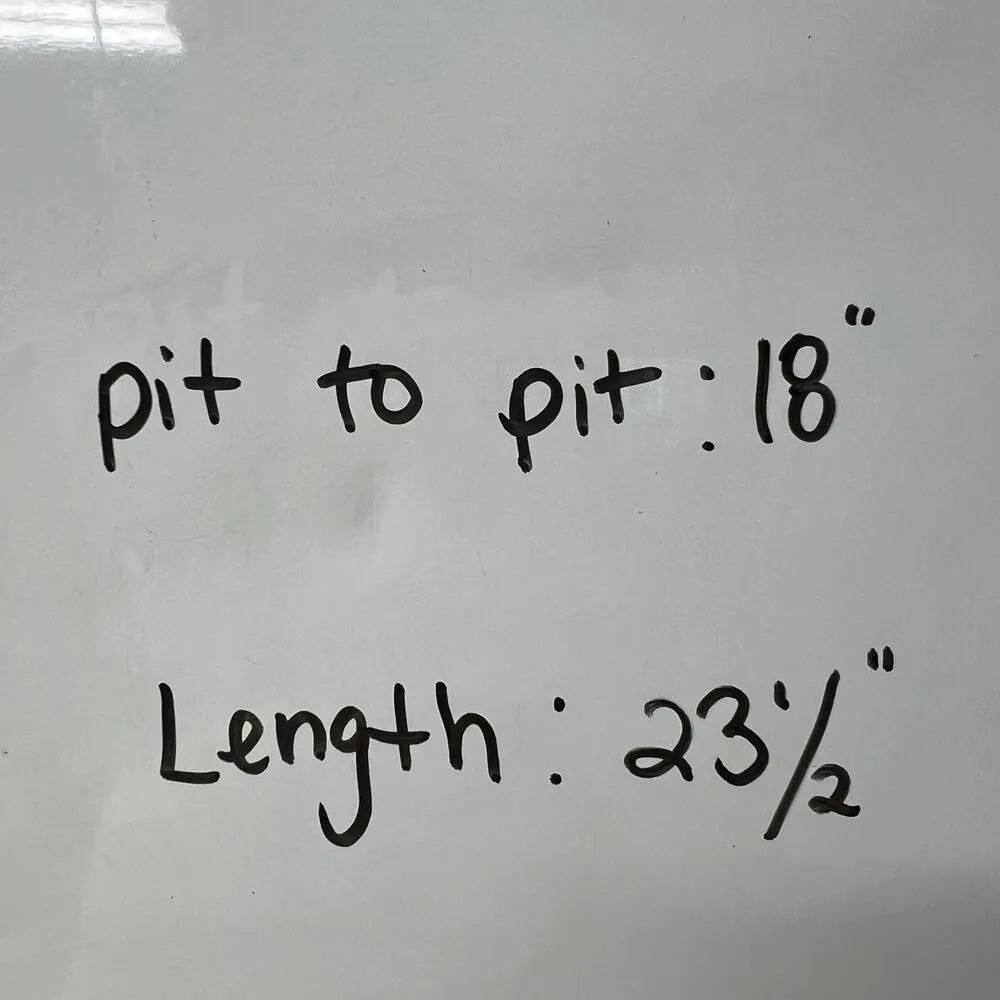 pit to pit: 18"
Length: 23 1/2"